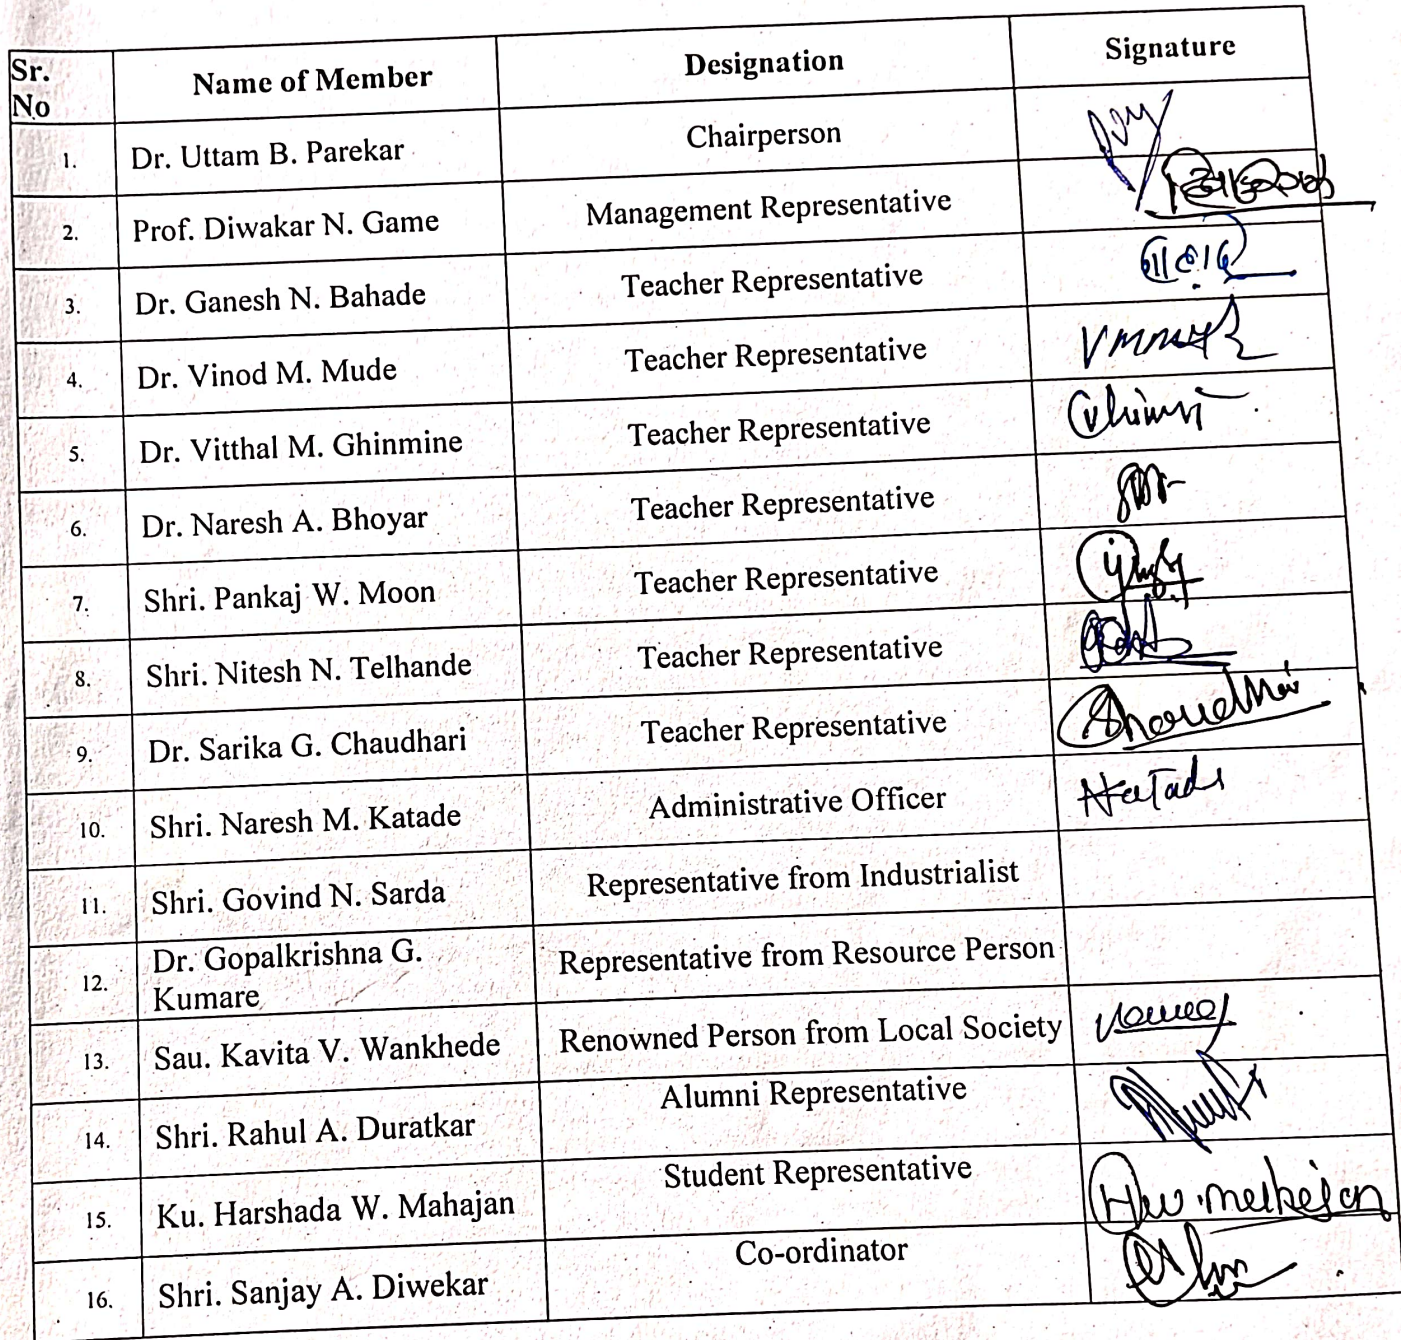 Sr. No Name of Member Designation Signature
1. Dr. Uttam B. Parekar Chairperson
2. Prof. Diwakar N. Game Management Representative
3. Dr. Ganesh N. Bahade Teacher Representative
4. Dr. Vinod M. Mude Teacher Representative
5. Dr. Vitthal M. Ghinmine Teacher Representative
6. Dr. Naresh A. Bhoyar Teacher Representative
7. Shri. Pankaj W. Moon Teacher Representative
8. Shri. Nitesh N. Telhande Teacher Representative
9. Dr. Sarika G. Chaudhari Teacher Representative
10. Shri. Naresh M. Katade Administrative Officer
11. Shri. Govind N. Sarda Representative from Industrialist
12. Dr. Gopalkrishna G. Kumare Representative from Resource Person
13. Sau. Kavita V. Wankhede Renowned Person from Local Society
14. Shri. Rahul A. Duratkar Alumni Representative
15. Ku. Harshada W. Mahajan Student Representative
16. Shri. Sanjay A. Diwekar Co-ordinator